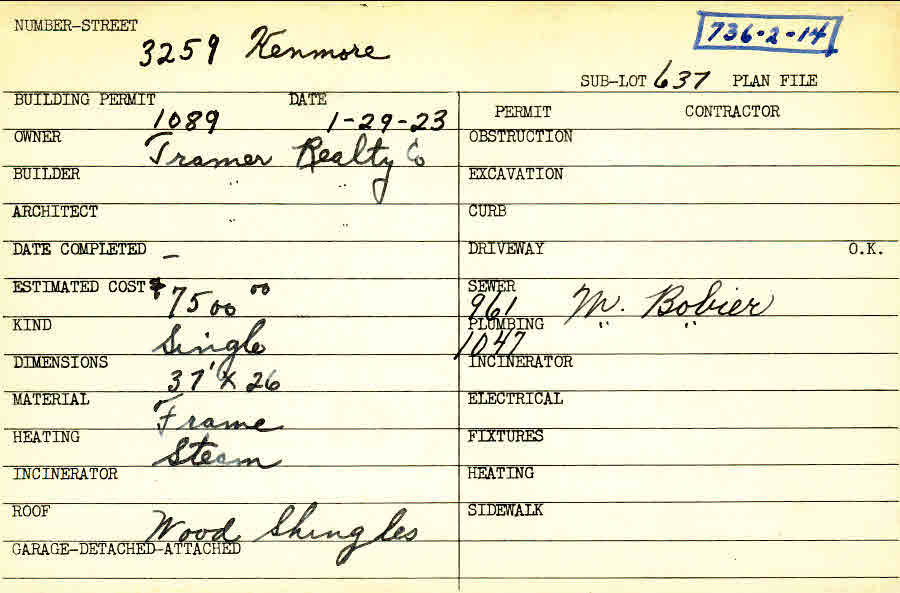 NUMBER-STREET
3259 Kenmore
736-2-14
SUB-LOT 637 PLAN FILE
BUILDING PERMIT 1089 DATE 1-29-23
OWNER Tramer Realty Co
BUILDER " "
ARCHITECT " "
DATE COMPLETED –
ESTIMATED COST $7500 00
KIND Single
DIMENSIONS 37' X 26
MATERIAL Frame
HEATING Steam
INCINERATOR
ROOF Wood Shingles
GARAGE-DETACHED-ATTACHED
PERMIT CONTRACTOR
OBSTRUCTION
EXCAVATION
CURB
DRIVEWAY O.K.
SEWER 961 M. Bobier
PLUMBING 1047 " "
INCINERATOR
ELECTRICAL
FIXTURES
HEATING
SIDEWALK